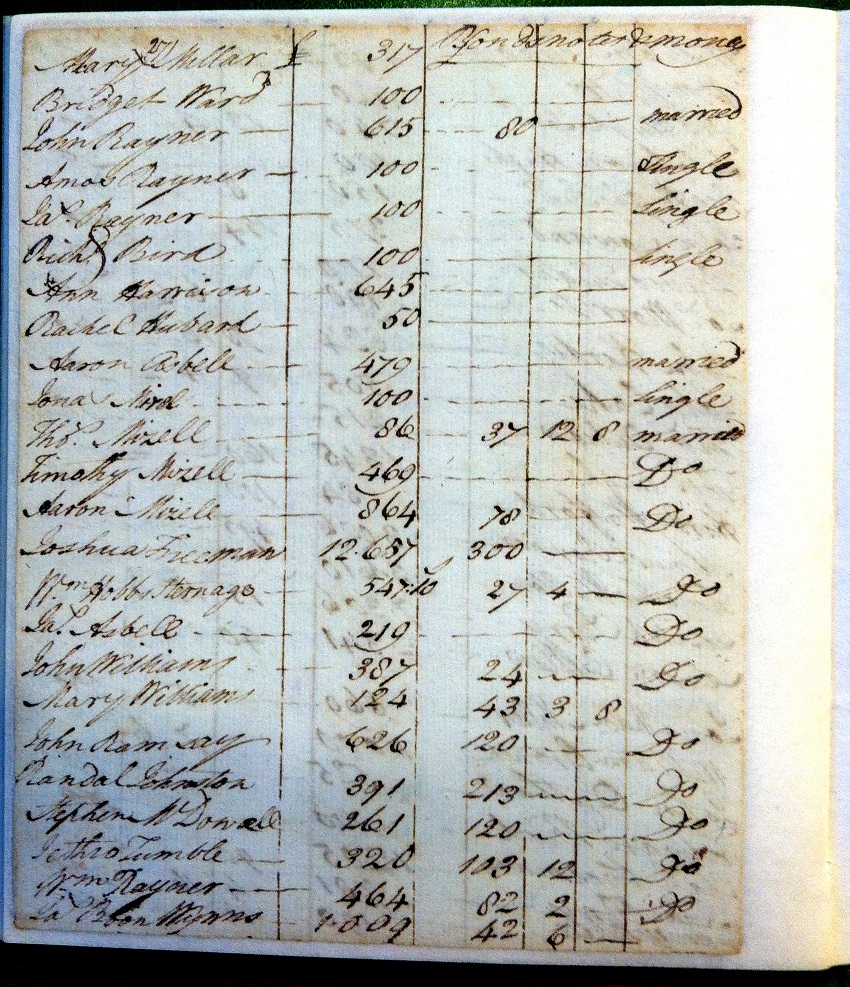 Mary Millar £ 317 Bonds notes & money
27
Bridget Ward 100
John Rayner 615 80 married
Amos Rayner 100 Single
Jas. Rayner 100 Single
Richd Bird 100 Single
Ann Harrison 645
Rachel Hubard 50
Aaron Asbell 479 married
Jonas 100 Single
Thos. Mizell 86 37 12 8 married
Timothy Mizell 469 Do
Aaron Mizele 864 78 Do
Joshua Freeman 12.657 300
Wm Hobbs 547:10 27 4 Do
Jas. Asbell 219 Do
John Williams 387 24 Do
Mary Williams 124 43 3 8
John Ramsay 626 120 Do
Randal Johnston 391 213 Do
Stephen McDowell 261 120 Do
Jethro 320 103 12 Do
Wm Rayner 464 82 2 Do
Wynns 1.009 42 6